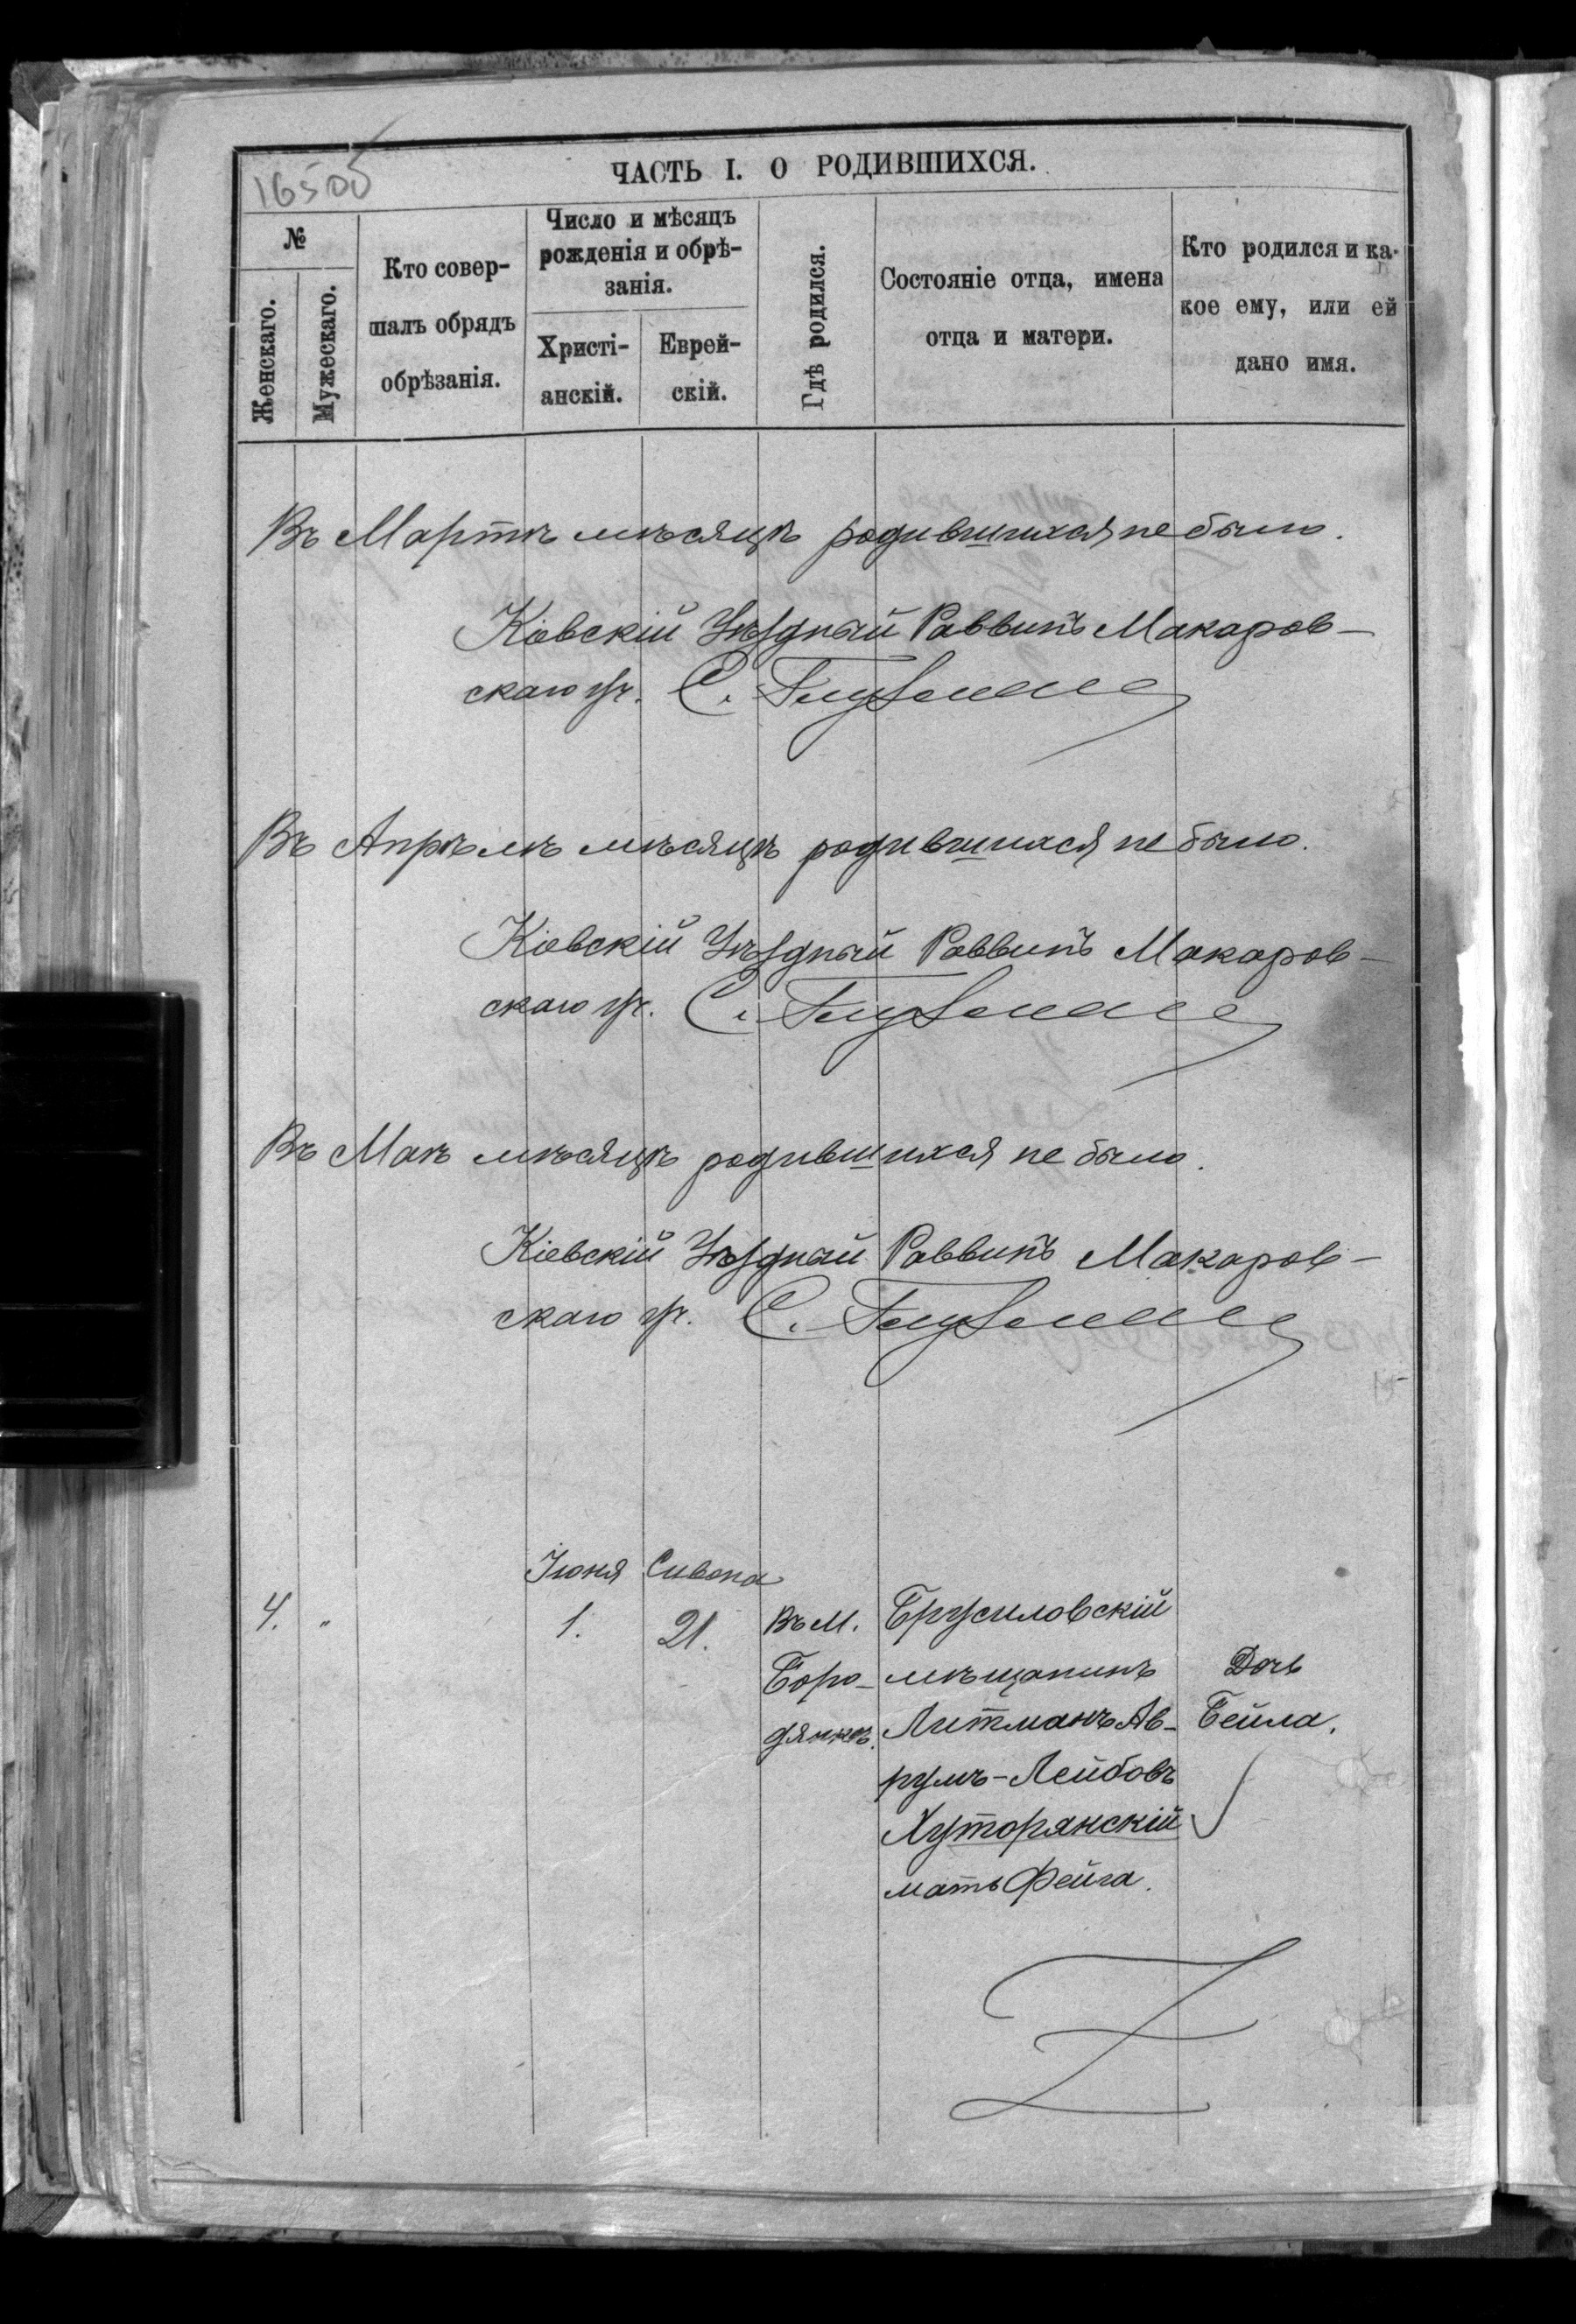 16505
ЧАСТЬ I. О РОДИВШИХСЯ.
№
Женскаго.
Мужескаго.
Кто совер-
шалъ обрядъ
обрѣзанія.
Число и мѣсяцъ
рожденія и обрѣ-
занія.
Христі-
анскій.
Еврей-
скій.
Гдѣ родился.
Состояніе отца, имена
отца и матери.
Кто родился и ка-
кое ему, или ей
дано имя.
Въ Мартѣ мѣсяцѣ родившихся не было.
Кіевскій Уѣздный Раввинъ Макаров-
скаго уч. С.
Въ Апрѣлѣ мѣсяцѣ родившихся не было.
Кіевскій Уѣздный Раввинъ Макаров-
скаго уч. С.
Въ Маѣ мѣсяцѣ родившихся не было.
Кіевскій Уѣздный Раввинъ Макаров-
скаго уч. С.
Іюня Сивана
4. " 1. 21. Въ М. Брусиловскій
Боро- мѣщанинъ Дочь
дянкѣ. Литманъ Ав- Бейла.
румъ-Лейбовъ
Хуторянскій
мать Фейга.